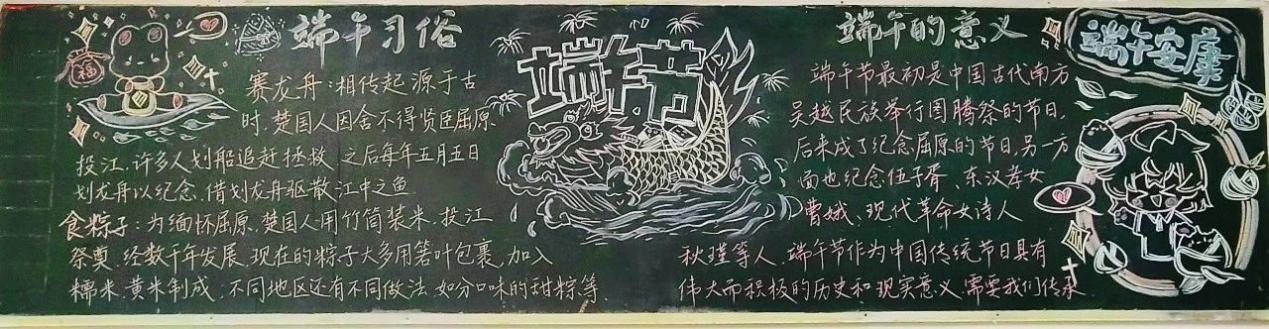 端午习俗
福
赛龙舟:相传起源于古
时,楚国人因舍不得贤臣屈原
投江,许多人划船追赶拯救,之后每年五月五日
划龙舟以纪念,借划龙舟驱散江中之鱼
食粽子:为缅怀屈原,楚国人用竹筒装米,投江
祭奠,经数千年发展,现在的粽子大多用箬叶包裹,加入
糯米、黄米制成,不同地区还有不同做法,如分口味的甜粽等.
端午节
端午的意义
端午节最初是中国古代南方
吴越民族举行图腾祭的节日,
后来成了纪念屈原的节日,另一方
面也纪念伍子胥、东汉孝女
曹娥、现代革命女诗人
秋瑾等人,端午节作为中国传统节日具有
伟大而积极的历史和现实意义,需要我们传承
端午安康